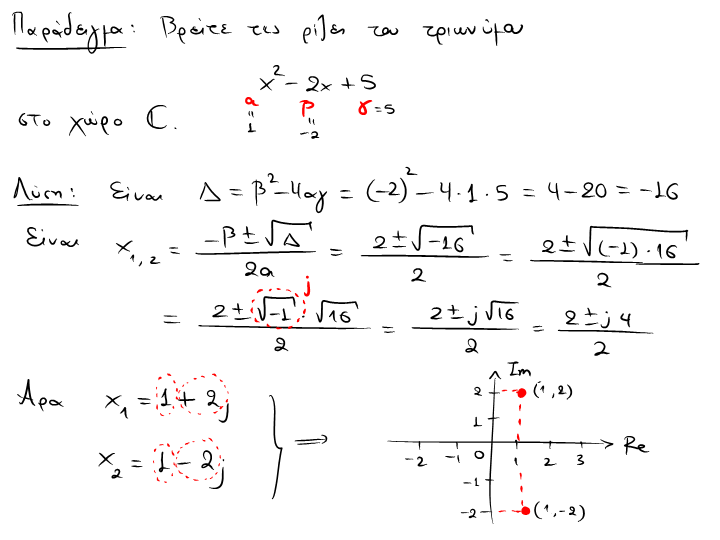 Παράδειγμα: Βρείτε τις ρίζες του τριωνύμου
x² - 2x + 5
α β γ=5
στο χώρο ℂ. " "
1 -2
Λύση: Είναι Δ = β² - 4αγ = (-2)² - 4·1·5 = 4 - 20 = -16
Είναι x₁,₂ = (-β ± √Δ)/2α = (2 ± √-16)/2 = (2 ± √((-1)·16))/2
= (2 ± √-1 · √16)/2 = (2 ± j√16)/2 = (2 ± j4)/2
j
Άρα x₁ = 1 + 2j
x₂ = 1 - 2j } ⟹
Im
2 (1, 2)
1
-2 -1 0 1 2 3 Re
-1
-2 (1, -2)